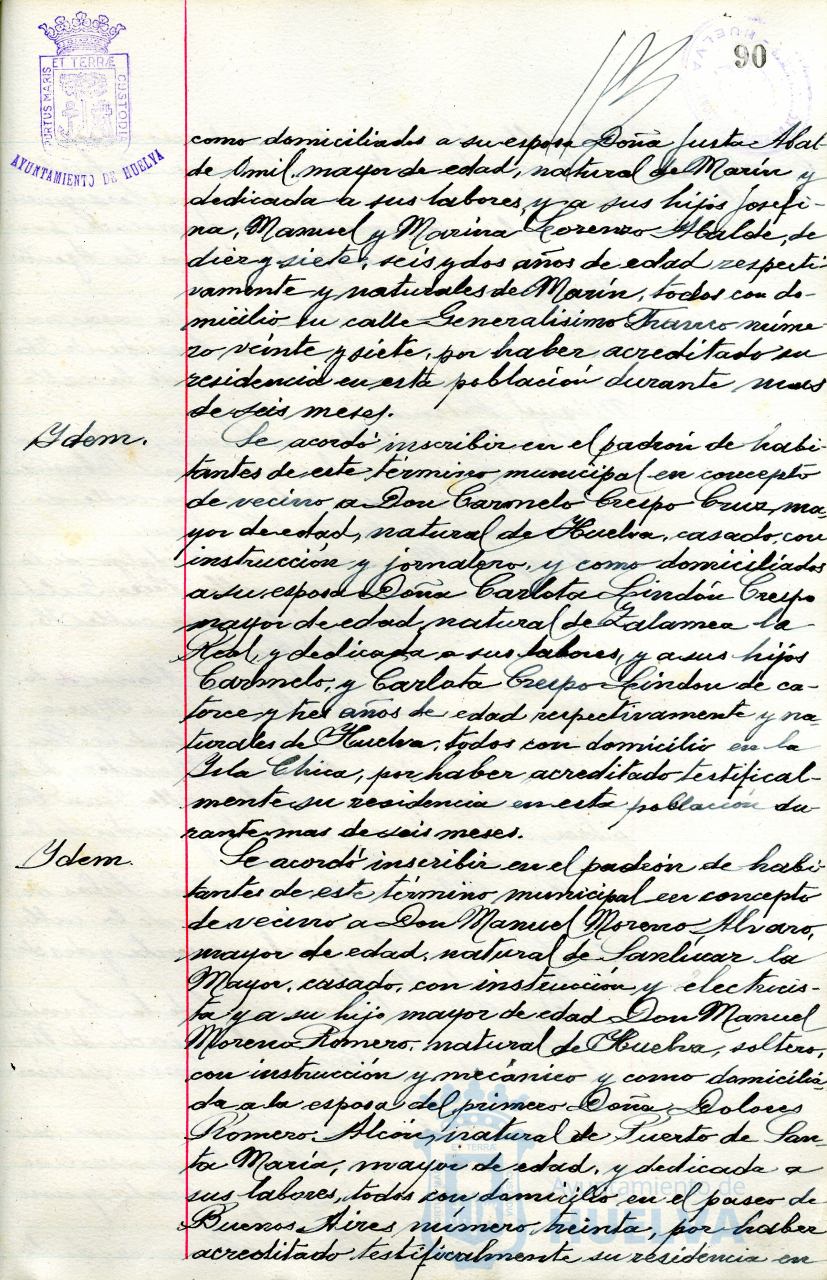 90
PORTUS MARIS ET TERRÆ CUSTODIA
AYUNTAMIENTO DE HUELVA
como domiciliados a su esposa Doña Justa Abal-
de Omil, mayor de edad, natural de Marín y
dedicada a sus labores, y a sus hijos Josefi-
na, Manuel y Marina Lorenzo Abalde, de
diez y siete, seis y dos años de edad respecti-
vamente y naturales de Marín, todos con do-
micilio en calle Generalísimo Franco núme-
ro veinte y siete, por haber acreditado su
residencia en esta población durante mas
de seis meses.
Ydem.
Se acordó inscribir en el padrón de habi-
tantes de este término municipal en concepto
de vecino a Don Carmelo Crespo Cruz, ma-
yor de edad, natural de Huelva, casado, con
instrucción y jornalero, y como domiciliados
a su esposa Doña Carlota Lindón Crespo
mayor de edad, natural de Zalamea la
Real, y dedicada a sus labores, y a sus hijos
Carmelo, y Carlota Crespo Lindon de ca-
torce y tres años de edad respectivamente y na-
turales de Huelva, todos con domicilio en la
Isla Chica, por haber acreditado testifical-
mente su residencia en esta población du-
rante mas de seis meses.
Ydem.
Se acordó inscribir en el padrón de habi-
tantes de este término municipal en concepto
de vecino a Don Manuel Moreno Alvaro,
mayor de edad, natural de Sanlúcar la
Mayor, casado, con instrucción y electricis-
ta y a su hijo mayor de edad Don Manuel
Moreno Romero, natural de Huelva, soltero,
con instrucción y mecánico y como domicilia-
da a la esposa del primero Doña Dolores
Romero Alcón, natural de Puerto de San-
ta María, mayor de edad, y dedicada a
sus labores, todos con domicilio en el paseo de
Buenos Aires número treinta, por haber
acreditado testificalmente su residencia en
Ayuntamiento de
HUELVA